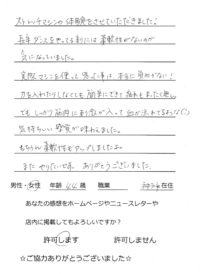 ストレッチマシンの体験をさせていただきました!
長年ダンスをやってる割には柔軟性がないのが
気になっていました。
実際マシンを使って感じた事は 本当に負担がない!
力を入れたりしなくても簡単にできて疲れませんでした
でも しっかり筋肉に刺激が入って 血が流れてるような
気持ちいい感覚が味わえました。
もちろん 柔軟性もアップしましたよ
また やりたいです。 ありがとうございました。
男性・女性 年齢 44 歳 職業 在住
あなたの感想をホームページやニュースレターや
店内に掲載してもよろしいですか?
許可します 許可しません
☆ご協力ありがとうございました☆